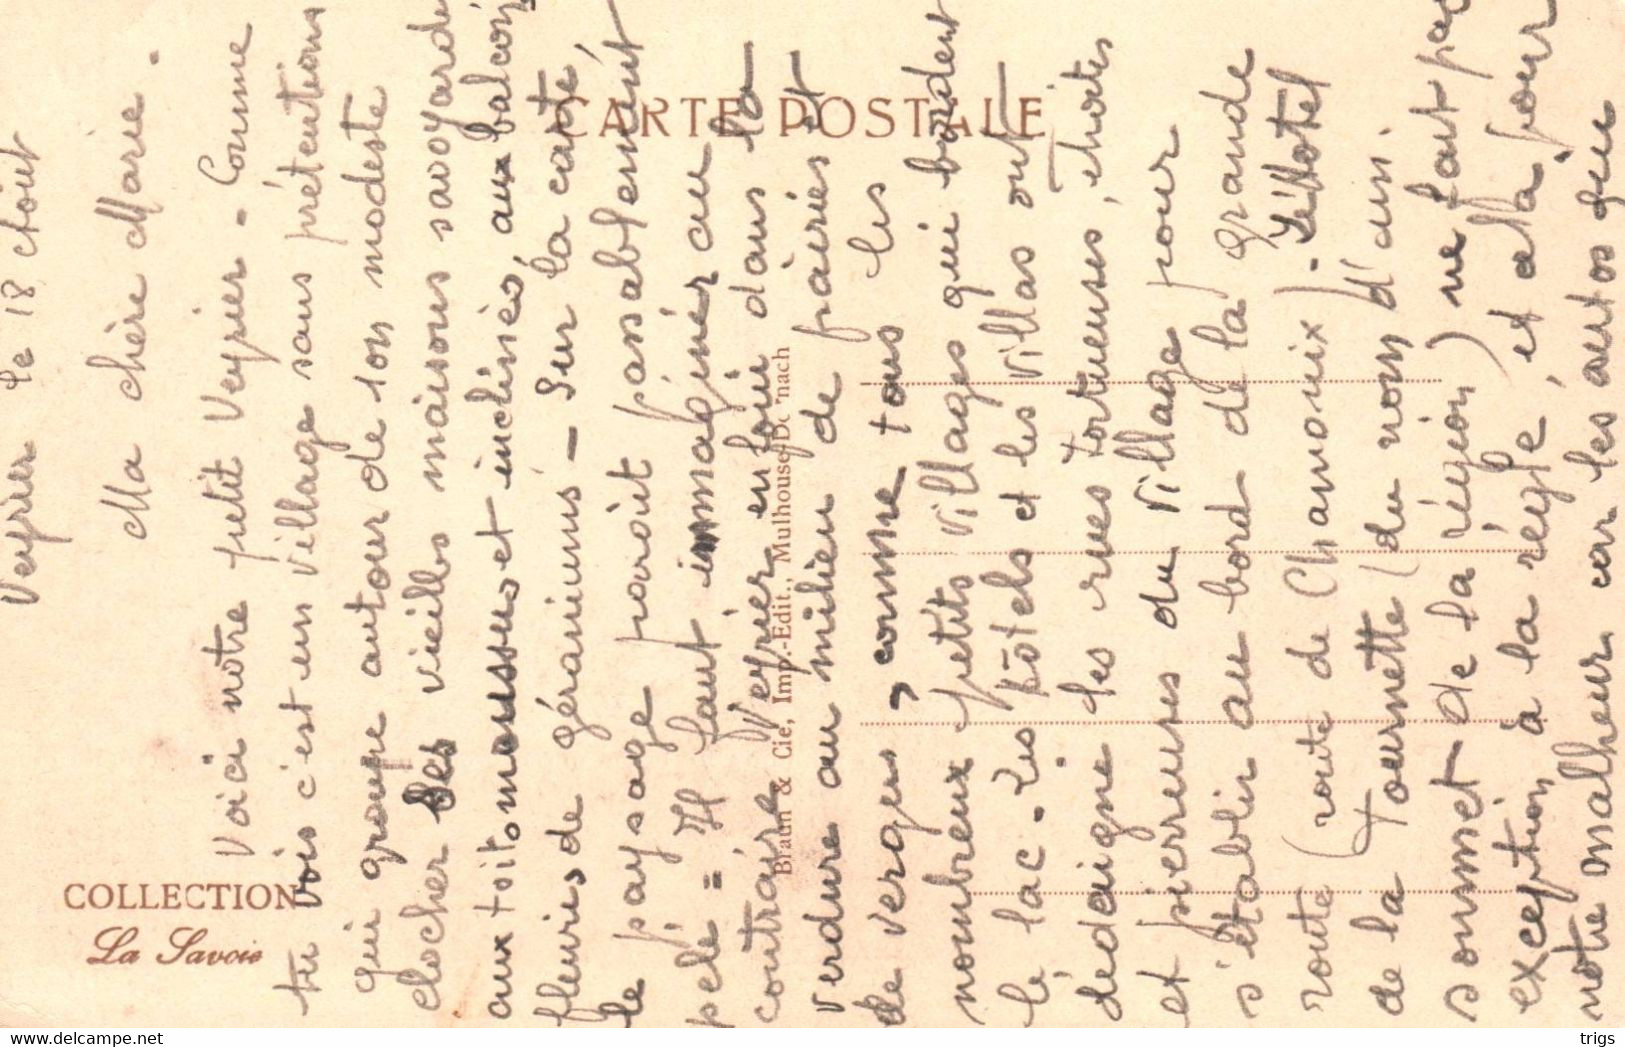 CARTE POSTALE
COLLECTION
La Savoie
Braun & Cie, Imp.-Edit., Mulhouse-Dornach
Veyrier le 18 Août
Ma chère Marie.
Voici notre petit Veyrier - Comme
tu vois c'est un village sans prétentions
qui groupe autour de son modeste
clocher ses vieilles maisons savoyardes
aux toits moussus et inclinés, aux balcons
fleuris de géraniums - Sur la carte,
le paysage paraît passablement
pelé = Il faut imaginer au
contraire Veyrier enfoui dans la
verdure au milieu de prairies et
de vergers, comme tous les
nombreux petits villages qui bordent
le lac - Les hôtels et les villas ont
dédaigné les rues tortueuses, étroites
et pierreuses du village pour
s'établir au bord de la grande
route (route de Chamonix) - L'Hôtel
de la Tournette (du nom d'un
sommet de la région) ne fait pas
exception à la règle, et cela pour
notre malheur car les autos qui
trigs
www.delcampe.net